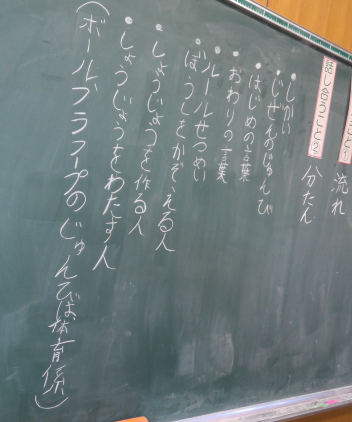 こと① 流れ
話し合うこと② 分たん
・しかい
・じぜんのじゅんび
・はじめの言葉
・おわりの言葉
・ルールせつめい
・ぼうしをかぞえる人
・しょうじょうを作る人
・しょうじょうをわたす人
(ボールフラフープのじゅんびは体育係)